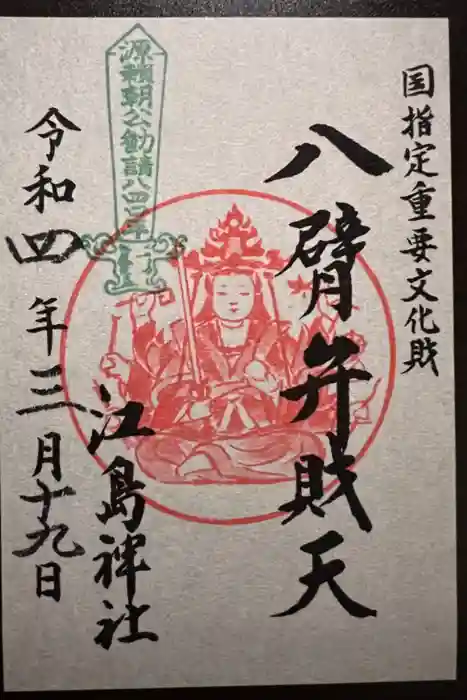 国指定重要文化財
八臂弁財天
源頼朝公勧請八四〇年
江島神社
令和四年三月十九日